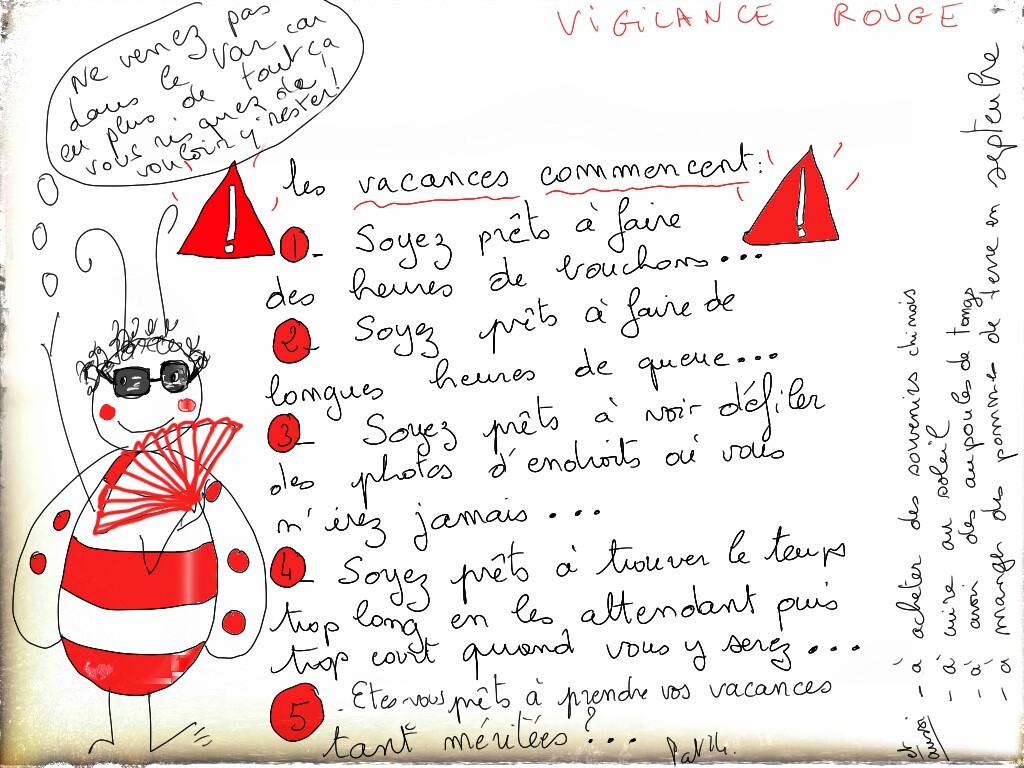 VIGILANCE ROUGE
Ne venez pas
dans le Var car
en plus de tout ça
vous risquez de
vouloir y rester!
les vacances commencent:
1_ Soyez prêts à faire
des heures de bouchons...
2_ Soyez prêts à faire de
longues heures de queue...
3_ Soyez prêts à voir défiler
des photos d'endroits où vous
n'irez jamais...
4_ Soyez prêts à trouver le temps
trop long en les attendant puis
trop court quand vous y serez...
5_ Etes-vous prêts à prendre vos vacances
tant méritées?...
et aussi
- à acheter des souvenirs chinois
- à cuire au soleil
- à avoir des ampoules de tongs
- à manger des pommes de terre en septembre